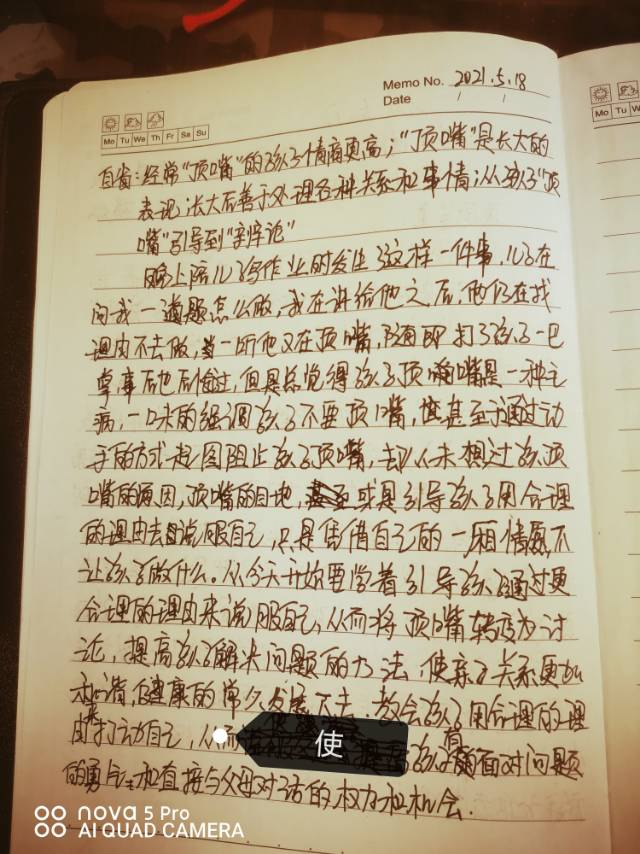 Memo No. 2021.5.18
Date / /
Mo Tu We Th Fr Sa Su
Mo Tu We
自省：经常“顶嘴”的孩子情商更高；“顶嘴”是长大的
表现；长大后善于处理各种关系和事情；从孩子“顶
嘴”引导到“辩论”
晚上陪儿子写作业时发生了这样一件事，儿子在
问我一道题怎么做，我在讲给他之后，他仍在找
理由不去做，当一听他又在顶嘴，随即打了孩子一巴
掌事后也后悔过，但是总觉得孩子顶嘴是一种毛
病，一味的强调孩子不要顶嘴，甚至于通过动
手的方式起图阻止孩子顶嘴，却从未想过孩子顶
嘴的原因，顶嘴的目地，或是引导孩子用合理
的理由去说服自己，只是凭借自己的一厢情愿不
让孩子做什么。从今天开始要学着引导孩子通过更
合理的理由来说服自己，从而将顶嘴转变为讨
论，提高孩子解决问题的方法，使亲子关系更加
和谐，健康的常久发展下去，教会孩子用合理的理
由来打动自己，从而使孩子有面对问题
的勇气和直接与父母对话的权力和机会.
nova 5 Pro
AI QUAD CAMERA